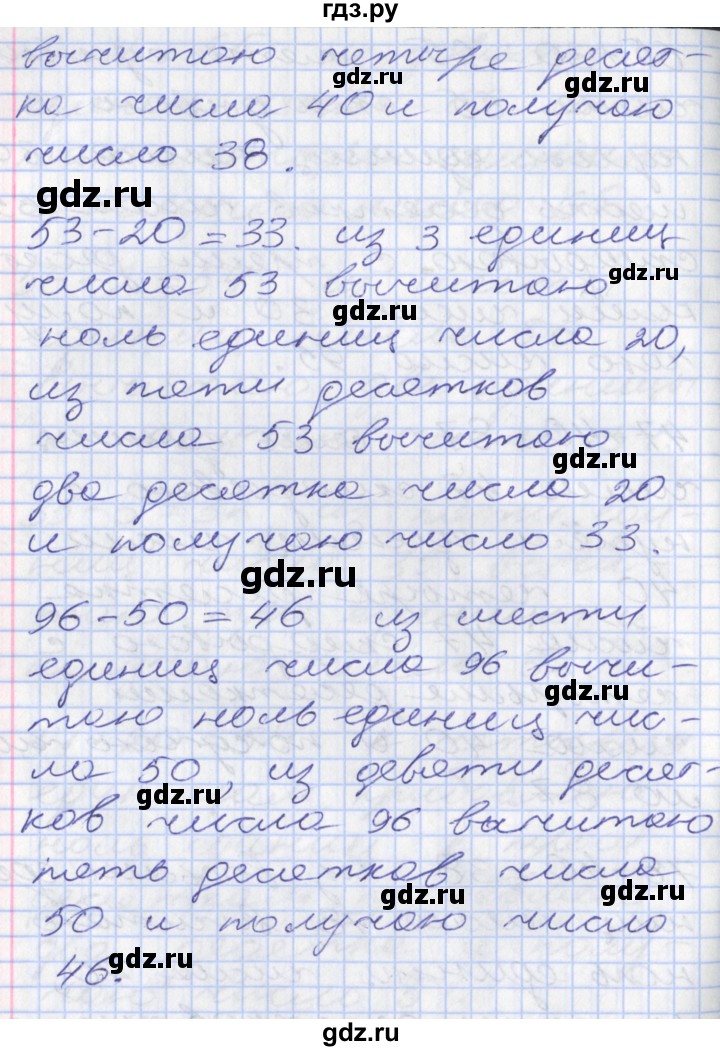 гдз.ру
вычитаю четыре десят-
gdz.ru
gdz.ru
ка числа 40 и получаю
число 38.
gdz.ru
53-20=33. из 3 единиц
gdz.ru
числа 53 вычитаю
gdz.ru
ноль единиц числа 20,
из пяти десятков
числа 53 вычитаю
gdz.ru
два десятка числа 20
и получаю число 33.
gdz.ru
96-50=46 из шести
единиц числа 96 вычи-
gdz.ru
таю ноль единиц чис-
ла 50, из девяти десят-
gdz.ru
ков числа 96 вычитаю
пять десятков числа
gdz.ru
gdz.ru
50 и получаю число
46.
gdz.ru
gdz.ru